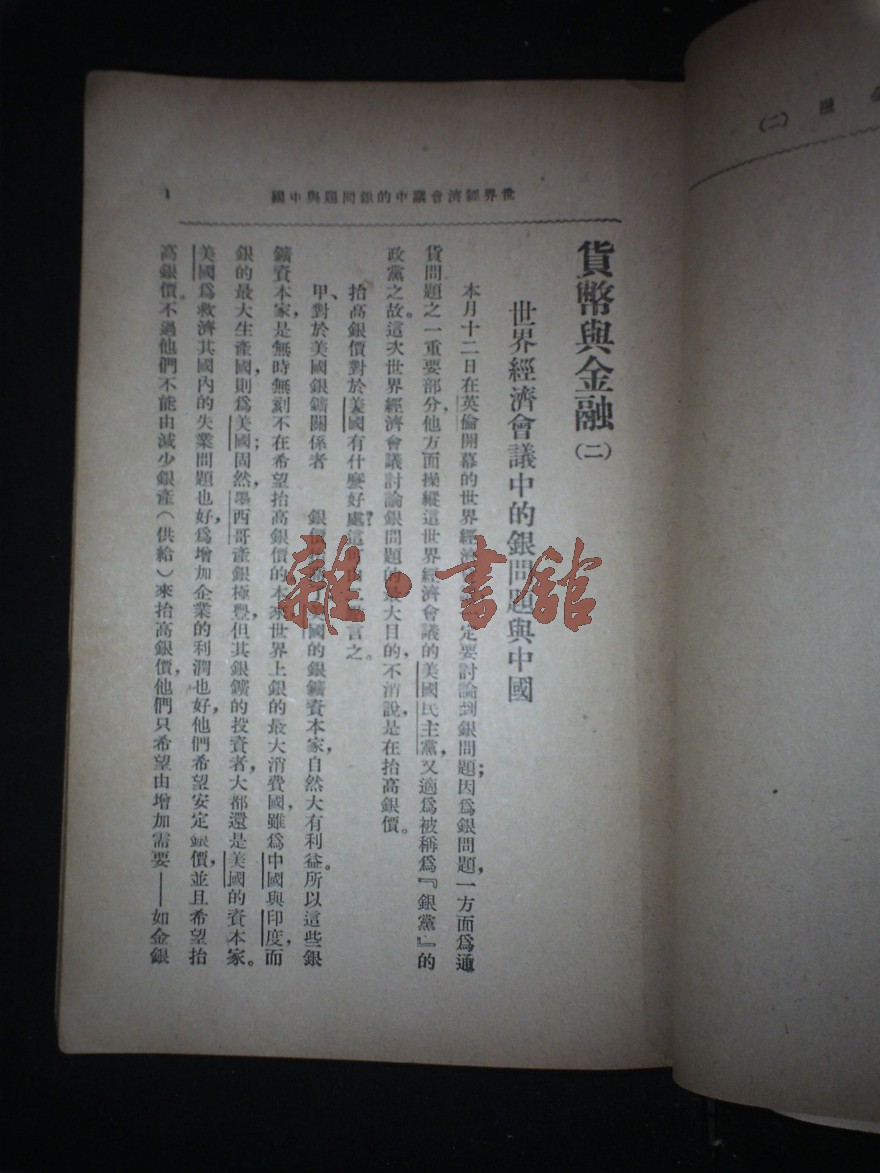 金融(二)
世界經濟會議中的銀問題與中國
1
貨幣與金融(二)
世界經濟會議中的銀問題與中國
本月十二日在英倫開幕的世界經濟定要討論到銀問題;因爲銀問題,一方面爲通
貨問題之一重要部分,他方面操縱這世界經濟會議的美國民主黨,又適爲被稱爲『銀黨』的
政黨之故。這次世界經濟會議討論銀問題的最大目的,不消說是在抬高銀價。
抬高銀價對於美國有什麼好處?這言之。
甲、對於美國銀鑛關係者 銀價國的銀鑛資本家,自然大有利益。所以這些銀
鑛資本家,是無時無刻不在希望抬高銀價的。本來世界上銀的最大消費國,雖爲中國與印度,而
銀的最大生產國,則爲美國;固然,墨西哥產銀極豐,但其銀鑛的投資者,大都還是美國的資本家。
美國爲救濟其國內的失業問題也好,爲增加企業的利潤也好,他們希望安定銀價,並且希望抬
高銀價。不過他們不能由減少銀產(供給)來抬高銀價,他們只希望由增加需要——如金銀
雜·書館